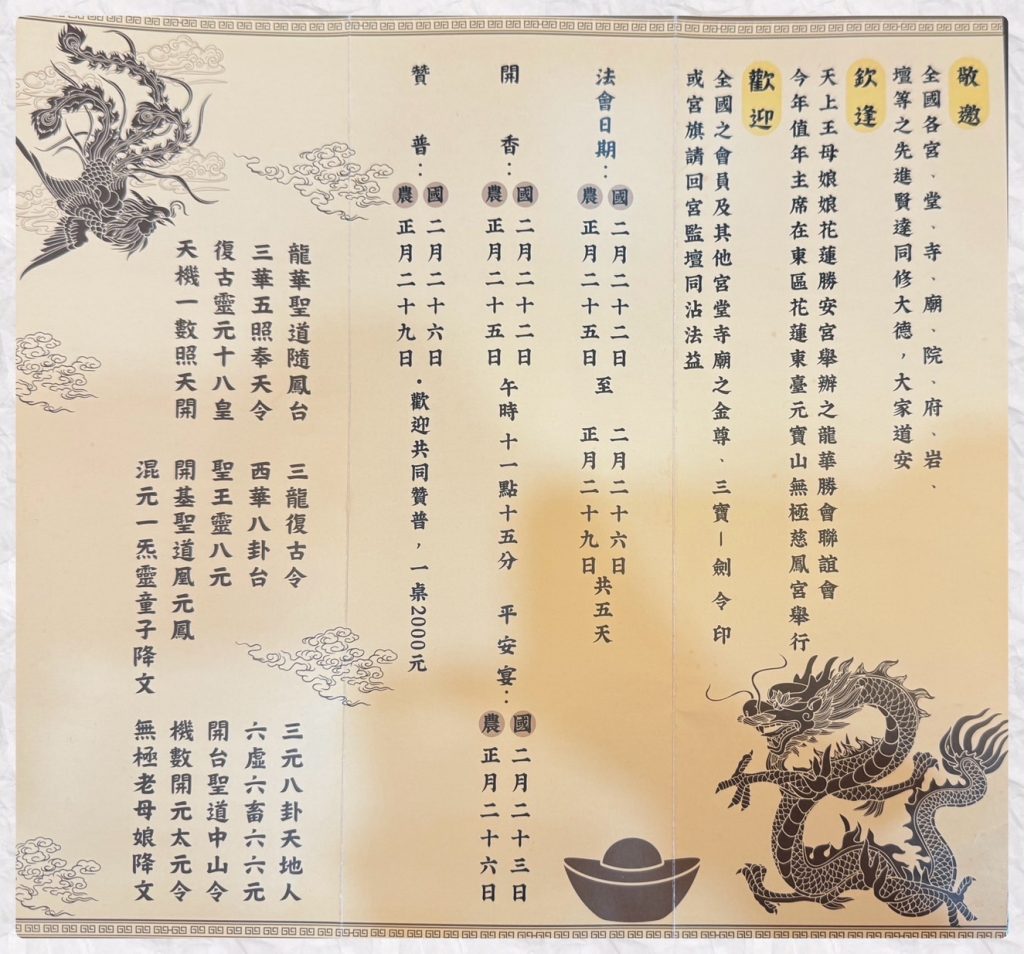 敬邀
全國各宮、堂、寺、廟、院、府、岩、
壇等之先進賢達同修大德，大家道安
欽逢
天上王母娘娘花蓮勝安宮舉辦之龍華勝會聯誼會
今年值年主席在東區花蓮東臺元寶山無極慈鳳宮舉行
歡迎
全國之會員及其他宮堂寺廟之金尊、三寶－劍令印
或宮旗請回宮監壇同沾法益
法會日期：
國 二月二十二日 至 二月二十六日
農 正月二十五日 正月二十九日 共五天
開香：
國 二月二十二日
農 正月二十五日
午時十一點十五分
平安宴：
國 二月二十三日
農 正月二十六日
贊普：
國 二月二十六日
農 正月二十九日
•歡迎共同贊普，一桌2000元
龍華聖道隨鳳台 三龍復古令 三元八卦天地人
三華五照奉天令 西華八卦台 六虛六畜六六元
復古靈元十八皇 聖王靈八元 開台聖道中山令
天機一數照天開 開基聖道凰元鳳 機數開元太元令
混元一炁靈童子降文 無極老母娘降文